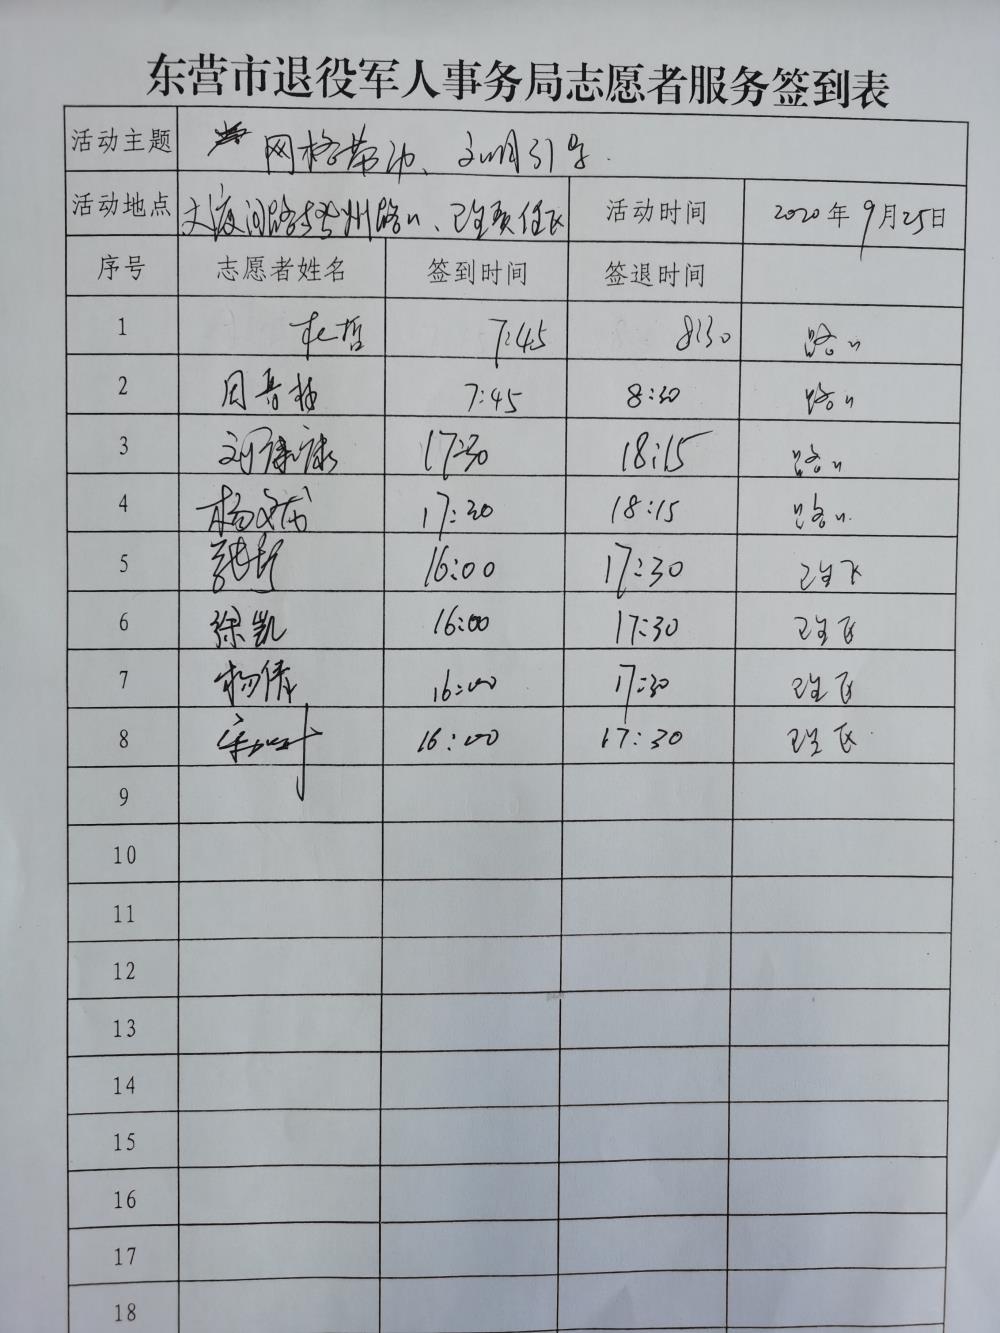 东营市退役军人事务局志愿者服务签到表
活动主题 网格带动、文明引导.
活动地点 大渡河路与 州路口、 活动时间 2020年9月25日
序号 志愿者姓名 签到时间 签退时间
1 杜哲 7:45 8:30 路口
2 周 7:45 8:30 路口
3 刘康康 17:30 18:15 路口
4 杨文成 17:30 18:15 路口
5 张 16:00 17:30
6 徐凯 16:00 17:30
7 杨倩 16:00 17:30
8 16:00 17:30
9
10
11
12
13
14
15
16
17
18